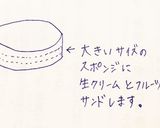 大きいサイズの
スポンジに
生クリームとフルーツ
サンドします。